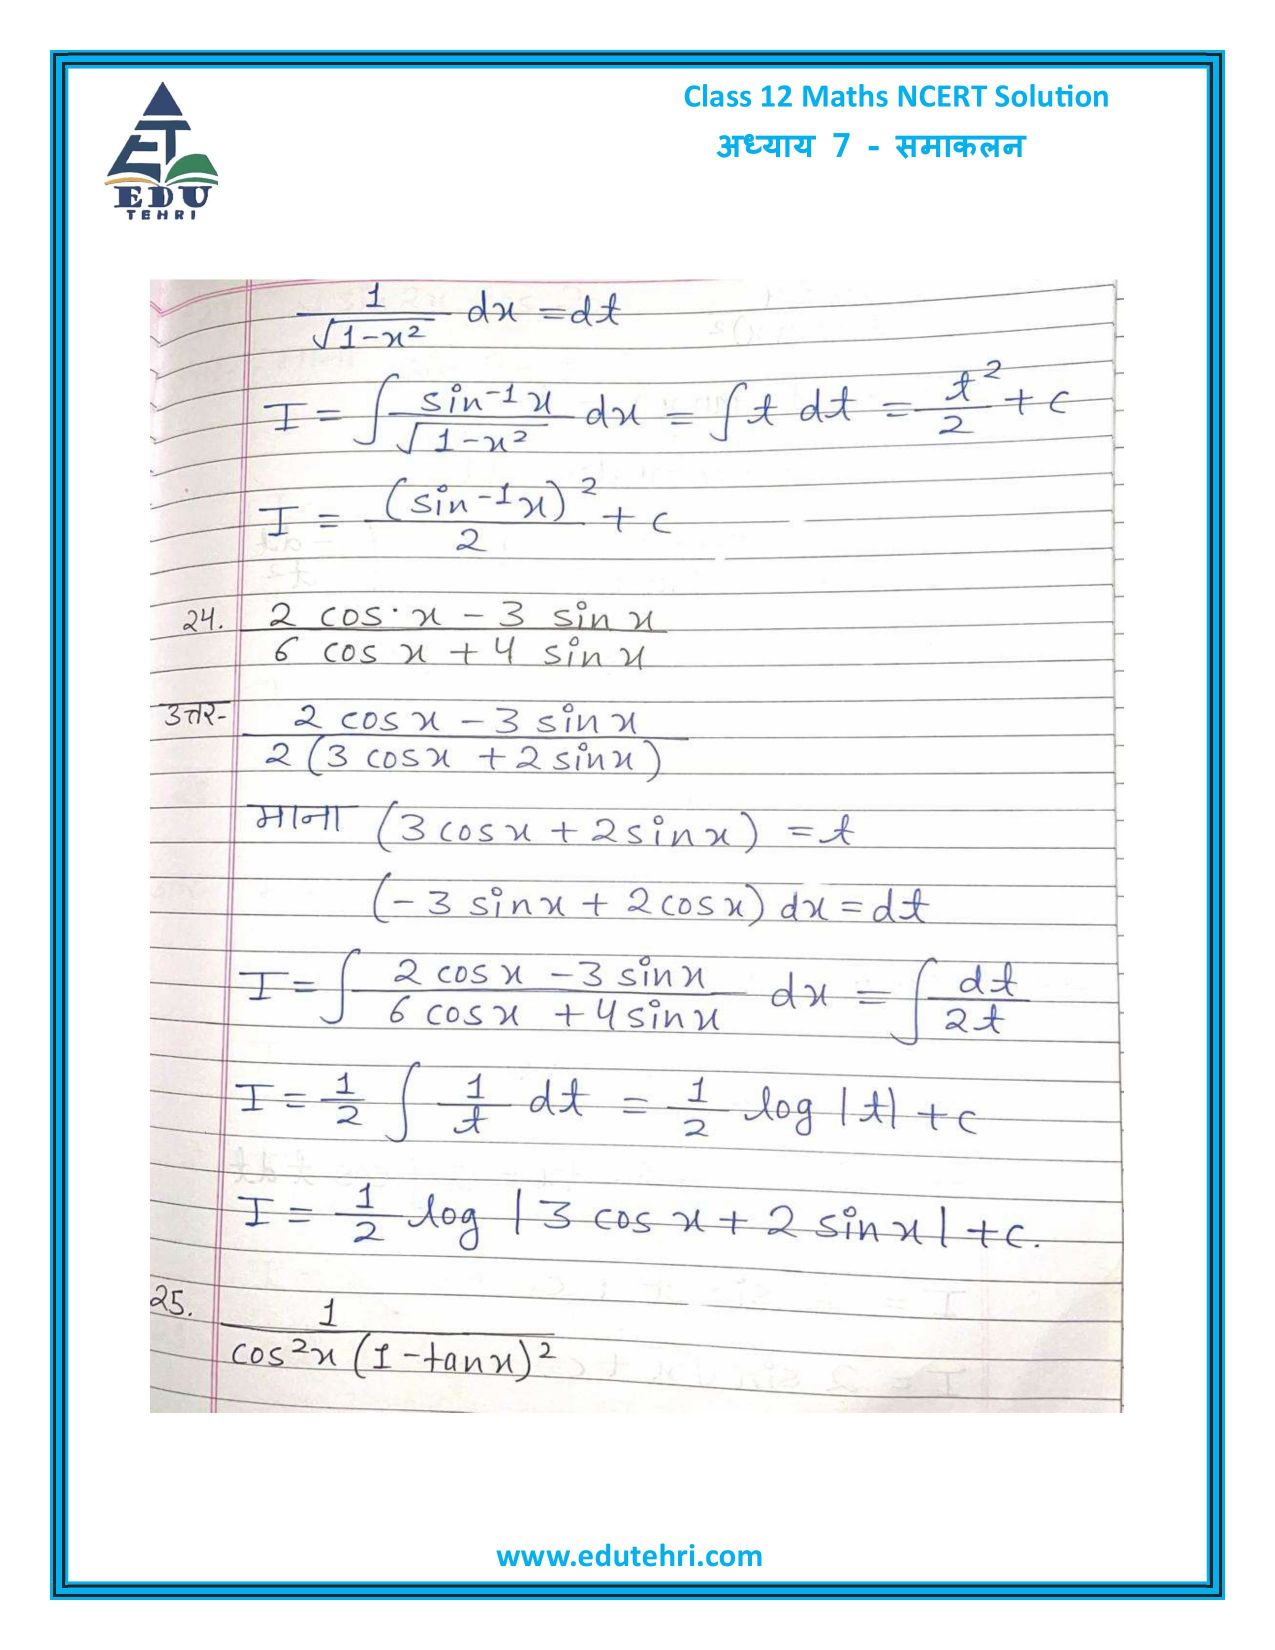 Class 12 Maths NCERT Solution
अध्याय 7 - समाकलन
EDU
TEHRI
1/√(1-x²) dx = dt
I = ∫ sin⁻¹x/√(1-x²) dx = ∫ t dt = t²/2 + c
I = (sin⁻¹x)²/2 + c
24. (2 cos x - 3 sin x)/(6 cos x + 4 sin x)
उत्तर- (2 cos x - 3 sin x)/(2(3 cos x + 2 sin x))
माना (3 cos x + 2 sin x) = t
(-3 sin x + 2 cos x) dx = dt
I = ∫ (2 cos x - 3 sin x)/(6 cos x + 4 sin x) dx = ∫ dt/2t
I = 1/2 ∫ 1/t dt = 1/2 log |t| + c
I = 1/2 log |3 cos x + 2 sin x| + c.
25. 1/(cos²x (1 - tan x)²)
www.edutehri.com